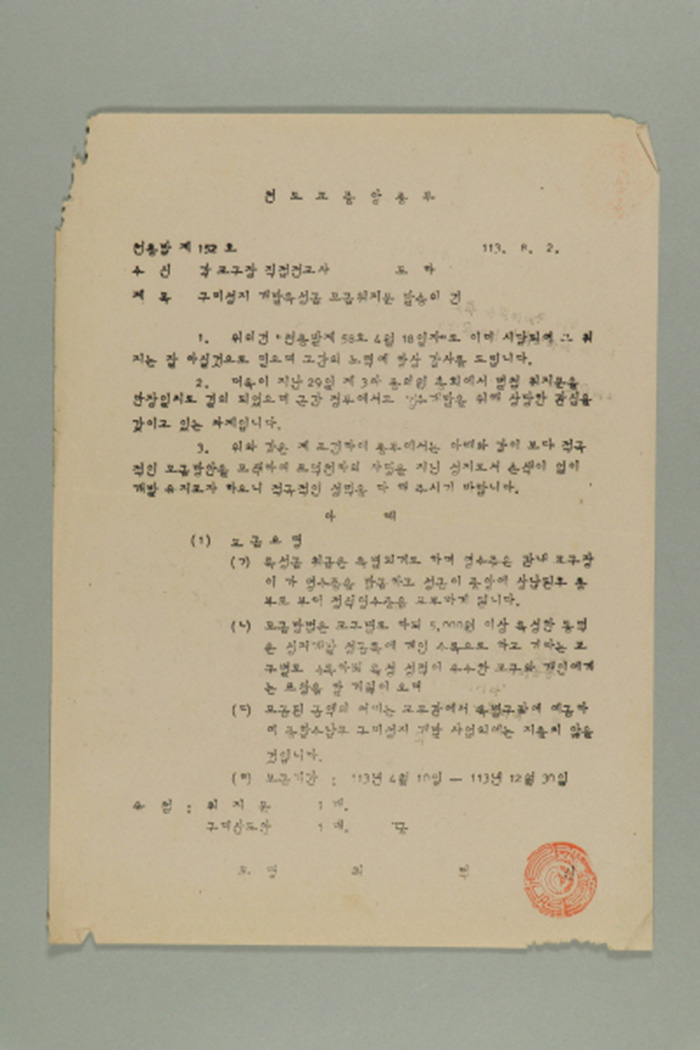 천도교중앙총부
천총발 제 152 호 113. 8. 2.
수 신 각 교구장 직접전교사 도 하
제 목 구미성지 개발특성금 모금취지문 발송의 건
1. 위의건 천총발제 58호 4월 18일자로 이미 시달되어 그 취
지는 잘 아실것으로 믿으며 그간의 노력에 항상 감사를 드립니다.
2. 더욱이 지난 29일 제 3차 총회에서 취지문을
만장일치로 결의 되었으며 근간 정부에서도 경주개발을 위해 상당한 관심을
갖이고 있는 차제입니다.
3. 위와 같은 제 조건하에 총부에서는 아래와 같이 보다 적극
적인 모금방안을 모색하여 포덕천하의 사명을 지닌 성지로서 손색이 없이
개발 유지코자 하오니 적극적인 성력을 다 해 주시기 바랍니다.
아 래
(1) 모금요령
(ㄱ) 특성금 취급은 특별회계로 하며 영수증은 관내 교구장
이 가 영수증을 발급하고 성금이 중앙에 상납된후 총
부로 부터 정식영수증을 교부하게 됩니다.
(ㄴ) 모금방법은 교구별로 하되 5,000원 이상 특성한 동덕
은 성지개발 성금록에 개인 수록으로 하고 기타는 교
구별로 수록하되 특성 성적이 우수한 교구와 개인에게
는 포상을 할 계획이오며
(ㄷ) 모금된 금액의 처리는 교호관에서 특별구좌에 예금하
여 구미성지 개발 사업외에는 지출치 않을
것입니다.
(ㄹ) 모금기간 : 113년 4월 10일 — 113년 12월 30일
유 첨 : 취 지 문 1 매.
구미산도안 1 매. 끝
교 령 최